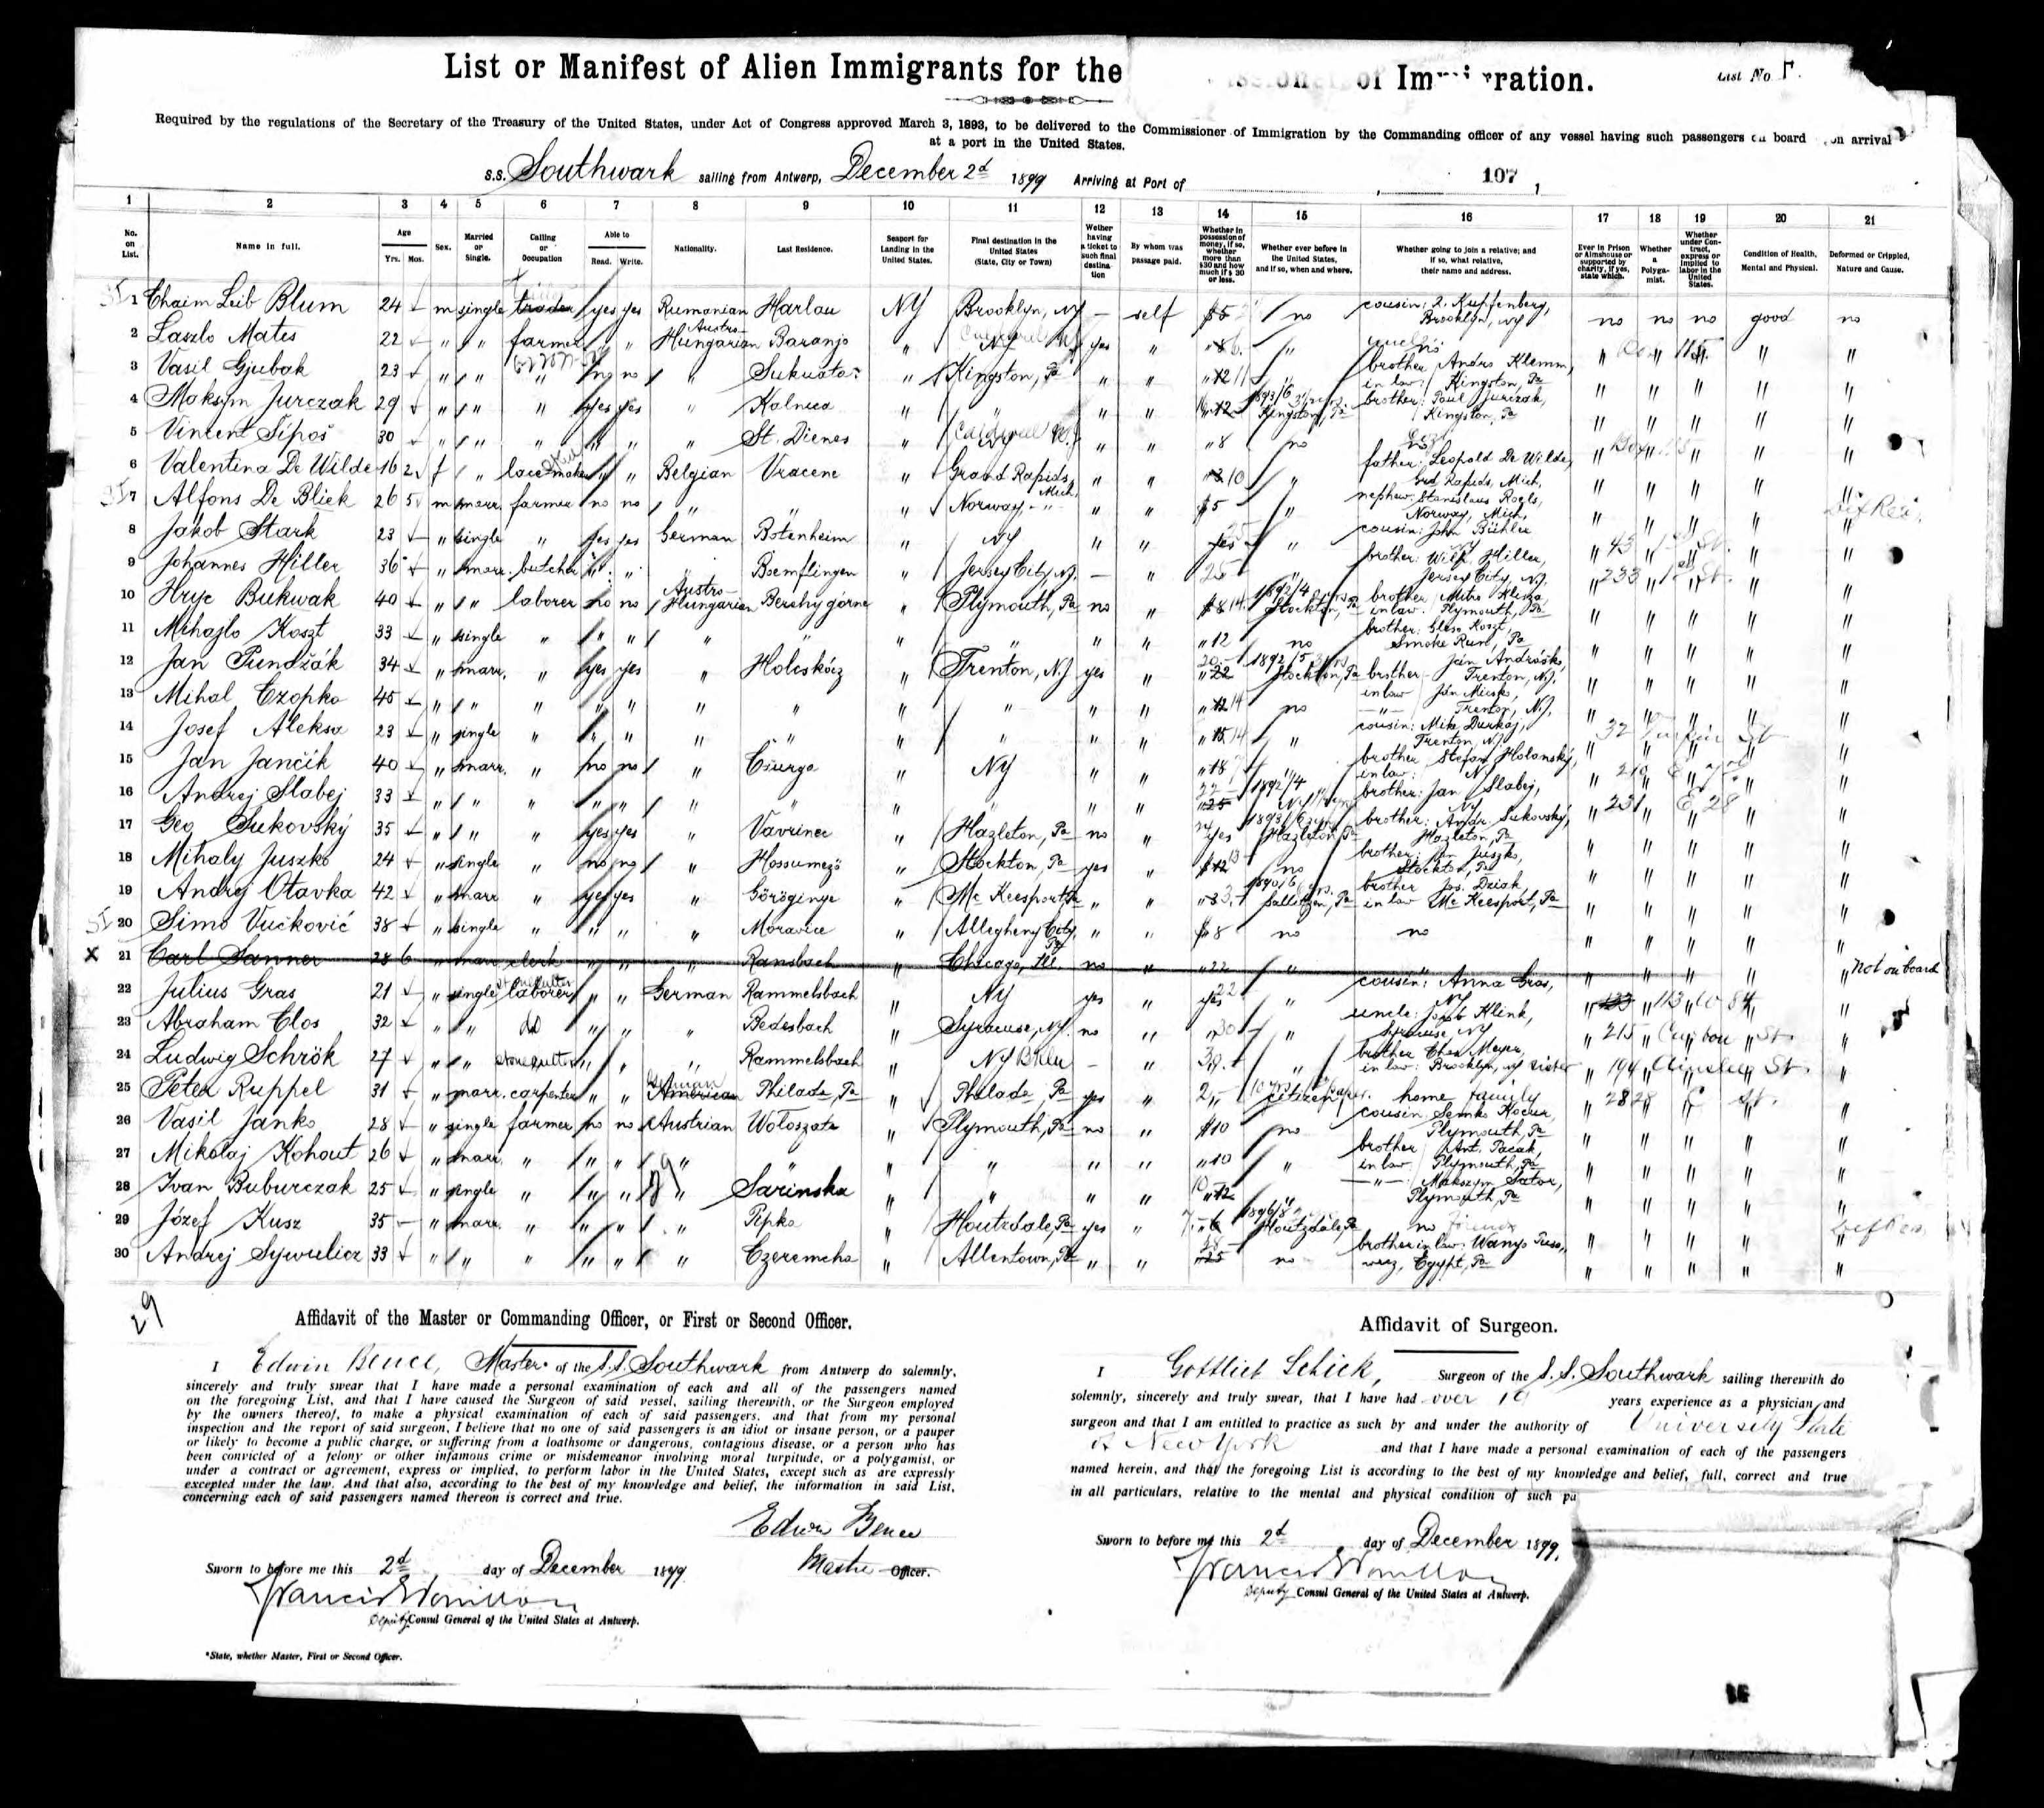 List or Manifest of Alien Immigrants for the of Immigration.
List No
Required by the regulations of the Secretary of the Treasury of the United States, under Act of Congress approved March 3, 1893, to be delivered to the Commissioner of Immigration by the Commanding officer of any vessel having such passengers on board on arrival
at a port in the United States.
S.S. Southwark sailing from Antwerp, December 2d 1899 Arriving at Port of 107
1 2 3 4 5 6 7 8 9 10 11 12 13 14 15 16 17 18 19 20 21
No. on List. Name in full. Age Yrs. Mos. Sex. Married or Single. Calling or Occupation Able to Read. Write. Nationality. Last Residence. Seaport for Landing in the United States. Final destination in the United States (State, City or Town) Wether having a ticket to such final destination By whom was passage paid. Whether in possession of money, if so, whether more than $30 and how much if $ 30 or less. Whether ever before in the United States, and if so, when and where. Whether going to join a relative; and if so, what relative, their name and address. Ever in Prison or Almshouse or supported by charity, if yes, state which. Whether a Polygamist. Whether under Contract, express or implied to labor in the United States. Condition of Health, Mental and Physical. Deformed or Crippled, Nature and Cause.
1 Chaim Leib Blum 24 m single trader yes yes Rumanian Harlau NY Brooklyn, NY — self $5 no cousin: Kupfenberg, Brooklyn, NY no no no good no
2 Laszlo Mates 22 " " farmer " " Austro-Hungarian Baranjo " NY yes " "
3 Vasil Gjubak 23 " " " no no " " Kingston, Pa " " " brother in law: Andro Klemm, Kingston, Pa " " " " "
4 Maksym Jurczak 29 " " " yes yes " Kalnica " " " " 12 Kingston, Pa brother: Paul Jurczak, Kingston, Pa " " " " "
5 Vincent Sipoš 30 " " " " " " St. Dienes " " " " 8 no no
6 Valentina De Wilde 16 2 f " lacemaker " " Belgian Vracene " Grand Rapids, Mich. " " 10 " father: Leopold De Wilde, Grd Rapids, Mich, " " " " "
7 Alfons De Bliek 26 5 m marr. farmer no no " " " Norway " " " $5 " nephew: Stanislaus Roels, Norway, Mich, " " " " "
8 Jakob Stark 23 " single " yes yes German Rotenheim " NY " " yes " cousin: John Bühler
9 Johannes Hiller 36 " marr. butcher " " " Boemflingen " Jersey City, NJ. — " 25 " brother: Wilh. Hiller, Jersey City, NJ. " 233
10 Hryc Bukwak 40 " " laborer no no Austro-Hungarian Berehy gorne " Plymouth, Pa no " 1892/4 Stockton, Pa brother in law: Mitro Kliza, Plymouth, Pa " " " " "
11 Mihajlo Koszt 33 " single " " " " " " " " " 12 no brother: Koszt, Smoke Run, Pa " " " " "
12 Jan Pundžák 34 " marr. " yes yes " Holcskócz " Trenton, NJ yes " 22 1892/5 Stockton, Pa brother in law Ján Andráško, Trenton, NJ. " " " " "
13 Mihal Czopko 45 " " " " " " " " " " " no —"— Ján Micsko, Trenton, NJ. " " " " "
14 Josef Aleksa 23 " single " " " " " " " " " " cousin: Mik. Durkaj, Trenton, NJ.
15 Jan Jančik 40 " marr. " no no " Csurgo " NY " " " brother in law: Stefan Holomský, NY
16 Andrej Slabej 33 " " " " " " " " " " " 25 1892/4 NY brother: Jan Slabej, NY " 231 E 28
17 Geo Sukovský 35 " " " yes yes " Vavrinec " Hazleton, Pa no " yes 1893/6 Hazleton, Pa brother: Andr. Sukovský, Hazleton, Pa " " " " "
18 Mihaly Juszko 24 " single " no no " Hossumezö " Stockton, Pa yes " $12 no brother: Jan Juszko, Stockton, Pa " " " " "
19 Andrej Otavka 42 " marr " yes yes " Göröginye " Mc Keesport, Pa " " 1890/6 brother in law Jos. Dziak, Mc Keesport, Pa " " " " "
20 Simo Vučković 38 " single " " " " Moravice " Allegheny City, Pa " " $8 no no " " " " "
X 21 Carl Sanner 28 6 " marr clerk " " " Ransbach " Chicago, Ill. no " 22 " " not on board
22 Julius Gras 21 " single laborer " " German Rammelsbach " NY yes " yes " cousin: Anna Gras, NY
23 Abraham Clos 32 " " do " " " Bedesbach " Syracuse, NY. no " 30 " uncle: Jacob Klink, Syracuse, NY " 215
24 Ludwig Schrök 27 " " stonecutter " " " Rammelsbach " NY — " " brother in law: Chas Meyer, Brooklyn, NY sister " 194 Ainslee St.
25 Peter Ruppel 31 " marr. carpenter " " German American Philada, Pa " Philada, Pa yes " citizen home family
26 Vasil Janko 28 " single farmer no no Austrian Woloszate " Plymouth, Pa no " $10 no cousin: Semko Kocur, Plymouth, Pa " " " " "
27 Mikolaj Kohout 26 " marr. " " " " " " " " " 10 " brother in law Ant. Pacak, Plymouth, Pa " " " " "
28 Ivan Buburczak 25 " single " " " " Sarinska " " " " 12 " —"— Maksym Sator, Plymouth, Pa " " " " "
29 Józef Kusz 35 " marr. " " " " Pipka " Houtzdale, Pa yes " 6 1896/8 Houtzdale, Pa no " " " " "
30 Andrej Sywulicz 33 " " " " " " Czeremcha " Allentown, Pa " " 25 no brother in law: Wanyo Egypt, Pa " " " " "
29
Affidavit of the Master or Commanding Officer, or First or Second Officer.
I Edwin Bence, Master of the S.S. Southwark from Antwerp do solemnly,
sincerely and truly swear that I have made a personal examination of each and all of the passengers named
on the foregoing List, and that I have caused the Surgeon of said vessel, sailing therewith, or the Surgeon employed
by the owners thereof, to make a physical examination of each of said passengers, and that from my personal
inspection and the report of said surgeon, I believe that no one of said passengers is an idiot or insane person, or a pauper
or likely to become a public charge, or suffering from a loathsome or dangerous, contagious disease, or a person who has
been convicted of a felony or other infamous crime or misdemeanor involving moral turpitude, or a polygamist, or
under a contract or agreement, express or implied, to perform labor in the United States, except such as are expressly
excepted under the law. And that also, according to the best of my knowledge and belief, the information in said List,
concerning each of said passengers named thereon is correct and true.
Edwin Bence
Master Officer.
Sworn to before me this 2d day of December 1899
Deputy Consul General of the United States at Antwerp.
*State, whether Master, First or Second Officer.
Affidavit of Surgeon.
I Gottlieb Schick, Surgeon of the S.S. Southwark sailing therewith do
solemnly, sincerely and truly swear, that I have had over 19 years experience as a physician and
surgeon and that I am entitled to practice as such by and under the authority of University State
of New York and that I have made a personal examination of each of the passengers
named herein, and that the foregoing List is according to the best of my knowledge and belief, full, correct and true
in all particulars, relative to the mental and physical condition of such pa
Sworn to before me this 2d day of December 1899.
Deputy Consul General of the United States at Antwerp.